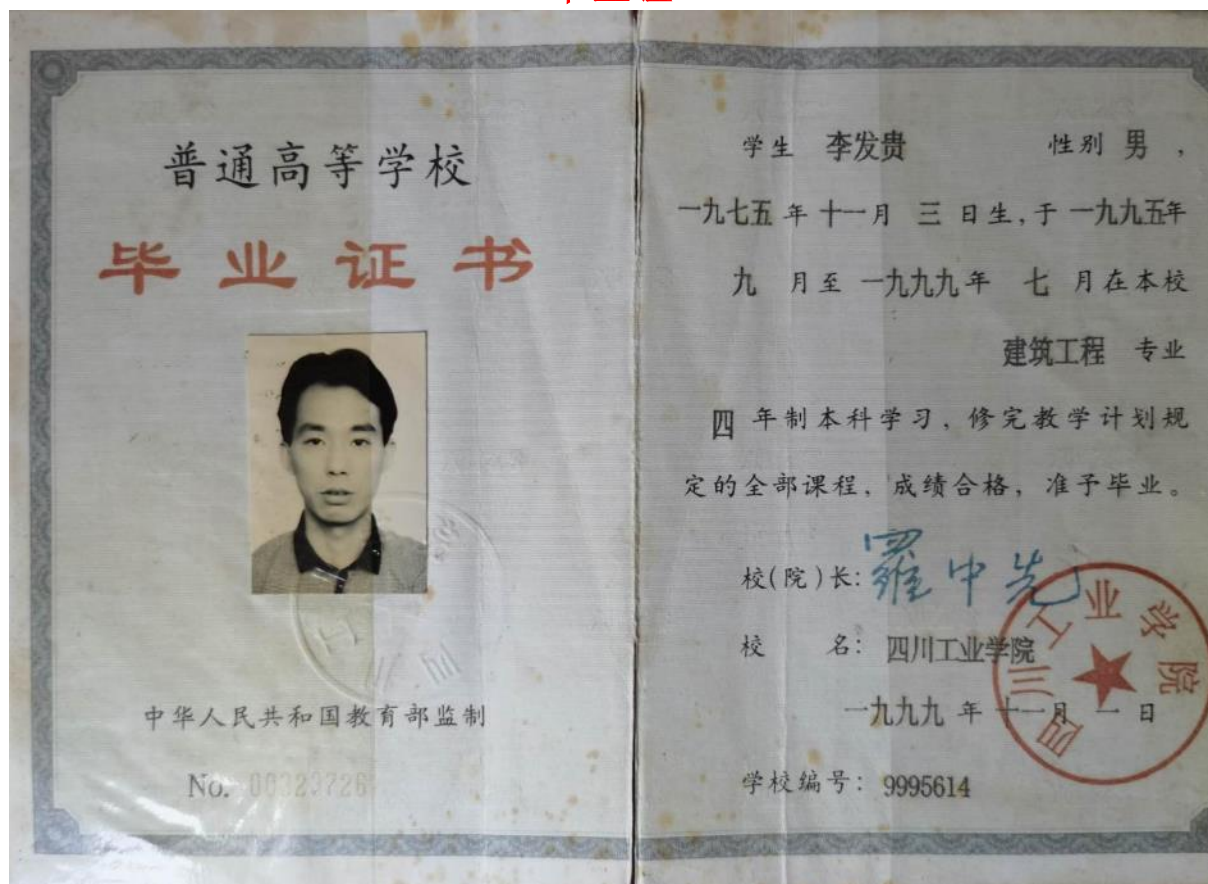 普通高等学校
毕业证书
中华人民共和国教育部监制
No. 00323726
学生 李发贵 性别 男，
一九七五年十一月 三 日生，于一九九五年
九 月至一九九九年 七 月在本校
建筑工程 专业
四 年制本科学习，修完教学计划规
定的全部课程，成绩合格，准予毕业。
校(院)长：罗中先
校 名：四川工业学院
一九九九年十一月 一 日
学校编号：9995614
四川工业学院